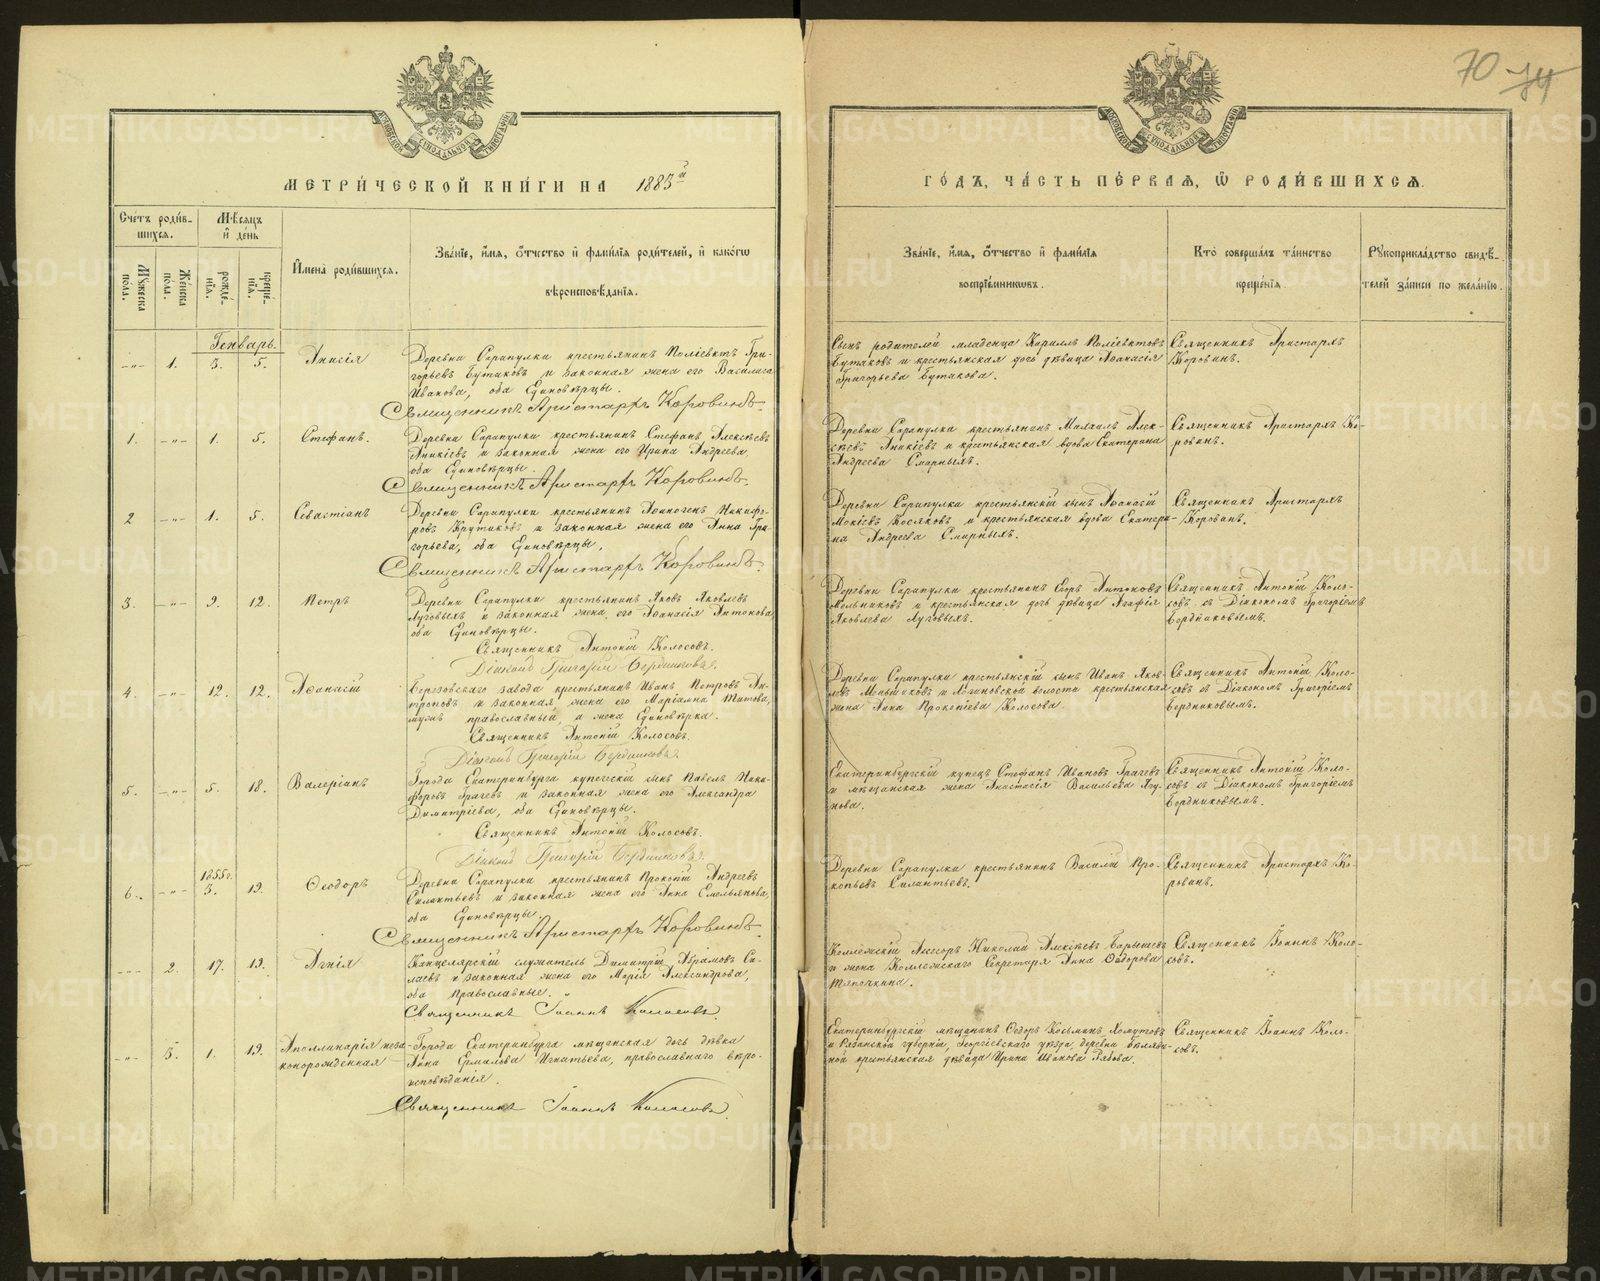 70 74
МЕТРИ́ЧЕСКОЙ КНИ́ГИ НА 1885й
ГО́ДЪ, ЧА́СТЬ ПЕ́РВАЯ, Ѡ РОДИ́ВШИХСЯ.
Сче́тъ роди́в-
шихся.
Му́жеска по́ла.
Же́нска по́ла.
Мѣ́сяцъ и де́нь
рожде́-нїя.
креще́-нїя.
И҆мена̀ роди́вшихся.
Зва́нїе, и҆́мя, ѻ҆́тчество и҆ фами́лїя роди́телей, и҆ како́гѡ
вѣроисповѣ́данїя.
Зва́нїе, и҆́мя, ѻ҆́тчество и҆ фами́лїя
воспрїе́мниковъ.
Кто̀ соверша́лъ та́инство
креще́нїя.
Рꙋкоприкла́дство свидѣ́-
телей за́писи по жела́нїю.
Генварь.
-"- 1. 3. 5. Анисія
Деревни Сарапулки крестьянинъ Поліевктъ Гри-
горьевъ Бутаковъ и законная жена его Василиса
Иванова, оба Единовѣрцы.
Священникъ Аристархъ Коровинъ.
Сынъ родителей младенца Кириллъ Поліевктовъ
Бутаковъ и крестьянская дочь дѣвица Афанасія
Григорьева Бутакова.
Священникъ Аристархъ
Коровинъ.
1. -"- 1. 5. Стефанъ.
Деревни Сарапулки крестьянинъ Стефанъ Алексѣевъ
Аникіевъ и законная жена его Ирина Андреева
оба Единовѣрцы.
Священникъ Аристархъ Коровинъ.
Деревни Сарапулки крестьянинъ Михаилъ Алек-
сѣевъ Аникіевъ и крестьянская вдова Екатерина
Андреева Смирныхъ.
Священникъ Аристархъ Ко-
ровинъ.
2 -"- 1. 5. Севастіанъ
Деревни Сарапулки крестьянинъ Афиногенъ Никифо-
ровъ Крутиковъ и законная жена его Анна Гри-
горьева, оба Единовѣрцы.
Священникъ Аристархъ Коровинъ.
Деревни Сарапулки крестьянскій сынъ Афанасій
Мокіевъ Косяковъ и крестьянская вдова Екатери-
на Андреева Смирныхъ.
Священникъ Аристархъ
Коровинъ.
3. -"- 9. 12. Петръ
Деревни Сарапулки крестьянинъ Яковъ Яковлевъ
Луговыхъ и законная жена его Афанасія Антонова
оба Единовѣрцы.
Священникъ Антоній Колосовъ.
Діаконъ Григорій Бердниковъ.
Деревни Сарапулки крестьянинъ Егоръ Антоновъ
Мельниковъ и крестьянская дочь дѣвица Агафія
Яковлева Луговыхъ.
Священникъ Антоній Коло-
совъ съ Діакономъ Григоріемъ
Бердниковымъ.
4. -"- 12. 12. Афанасій
Березовскаго завода крестьянинъ Иванъ Петровъ Ан-
троповъ и законная жена его Маріамна Титова,
мужъ православный, а жена Единовѣрка.
Священникъ Антоній Колосовъ.
Діаконъ Григорій Бердниковъ.
Деревни Сарапулки крестьянскій сынъ Иванъ Яков-
левъ и Логиновской волости крестьянская
жена Анна Прокопіева Колосова.
Священникъ Антоній Коло-
совъ съ Діакономъ Григоріемъ
Бердниковымъ.
5. -"- 5. 18. Валеріанъ
Города Екатеринбурга купеческій сынъ Павелъ Ники-
форовъ Грачевъ и законная жена его Александра
Димитріева, оба Единовѣрцы.
Священникъ Антоній Колосовъ.
Діаконъ Григорій Бердниковъ.
Екатеринбургскій купецъ Стефанъ Ивановъ Грачевъ
и мѣщанская жена Анастасія Васильева Ягу-
нова.
Священникъ Антоній Коло-
совъ съ Діакономъ Григоріемъ
Бердниковымъ.
6. -"- 3. 19. Ѳеодоръ
Деревни Сарапулки крестьянинъ Прокопій Андреевъ
Силантьевъ и законная жена его Анна Емельянова,
оба Единовѣрцы.
Священникъ Аристархъ Коровинъ.
Деревни Сарапулки крестьянинъ Василій Про-
копьевъ Силантьевъ.
Священникъ Аристархъ Ко-
ровинъ.
-"- 2. 17. 19. Агнія
Канцелярскій служитель Димитрій Абрамовъ Си-
лаевъ и законная жена его Марія Александрова,
оба православные.
Священникъ Іоаннъ Колосовъ.
Коллежскій Асесоръ Николай Алексѣевъ Барышевъ
и жена Коллежскаго Секретаря Анна Ѳедорова
Тяпочкина.
Священникъ Іоаннъ Коло-
совъ.
-"- 3. 1. 19. Аполлинарія неза-
коннорожденная
Города Екатеринбурга мѣщанская дочь дѣвка
Анна Ермилова Игнатьева, православнаго вѣро-
исповѣданія.
Священникъ Іоаннъ Колосовъ.
Екатеринбургскій мѣщанинъ Ѳедоръ Косьминъ Хомутовъ
и Рязанской губерніи, уѣзда, деревни
крестьянская дѣвица Ирина Иванова Рябова.
Священникъ Іоаннъ Коло-
совъ.
METRIKI.GASO-URAL.RU